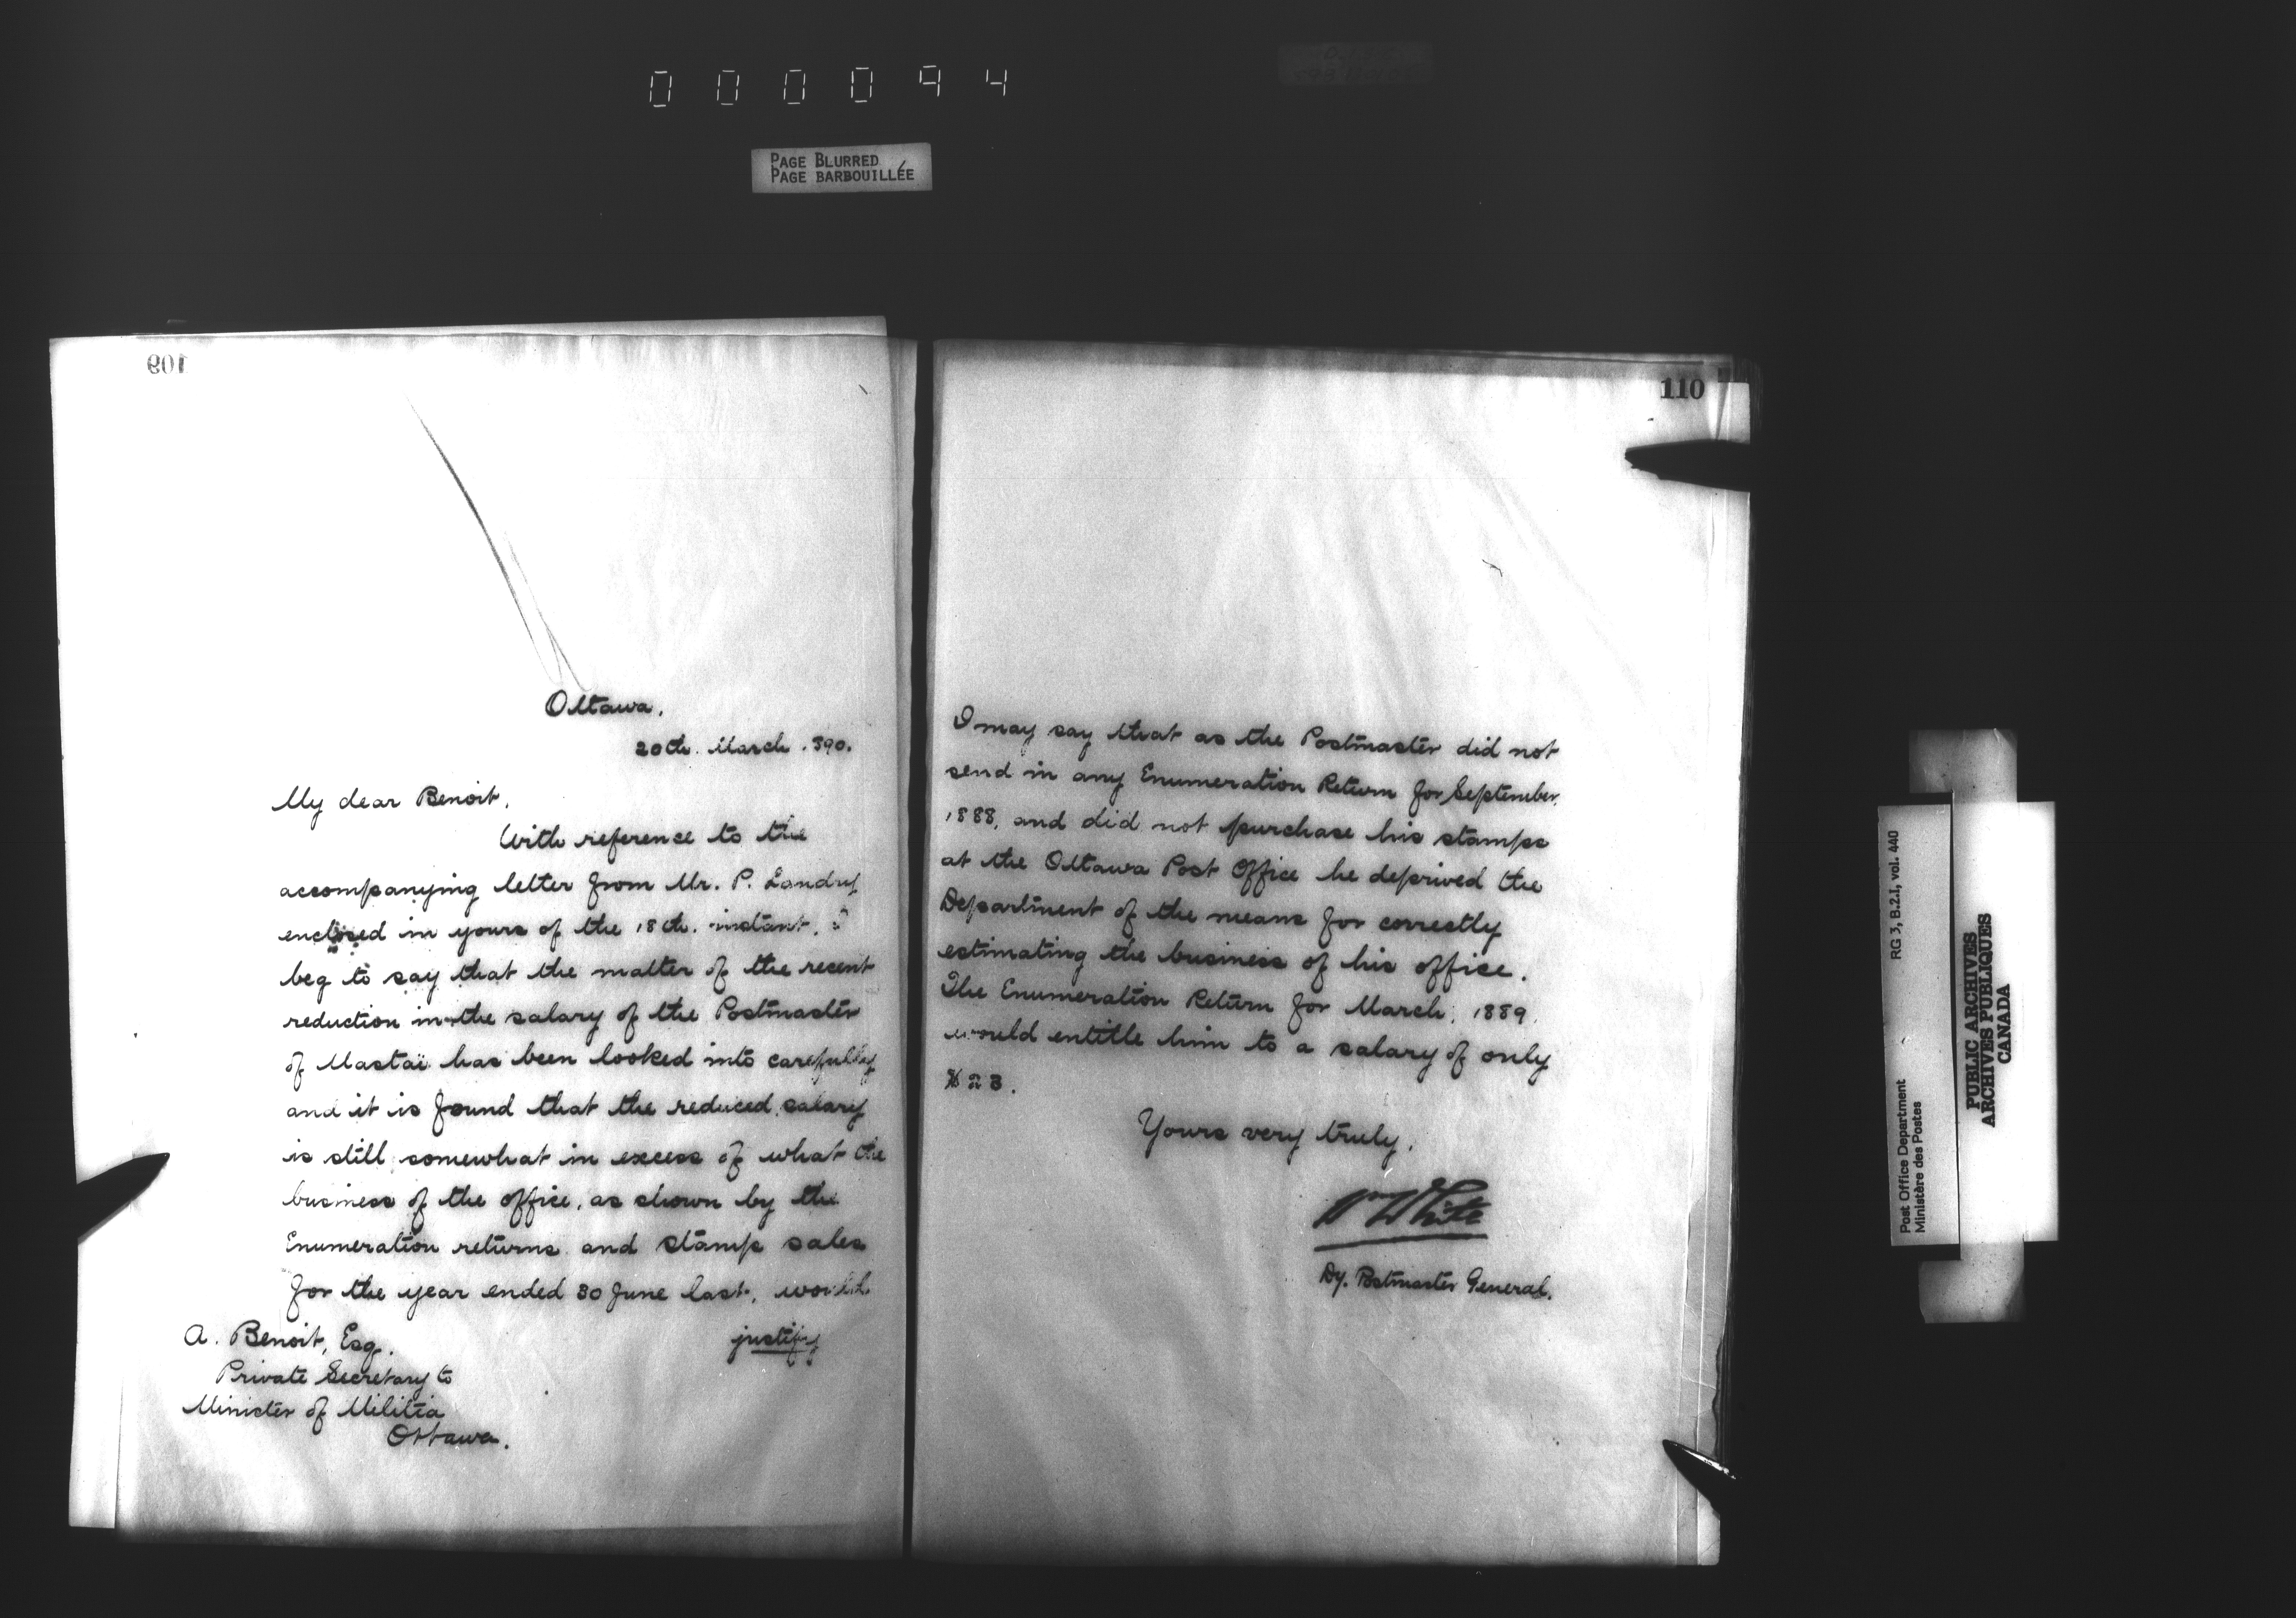 000094
PAGE BLURRED
PAGE BARBOUILLÉE
109
Ottawa.
20th. March. 890.
My dear Benoit,
With reference to the
accompanying letter from Mr. P. Landry
enclosed in yours of the 18th. instant. I
beg to say that the matter of the recent
reduction in the salary of the Postmaster
of Mastaï has been looked into carefully
and it is found that the reduced salary
is still somewhat in excess of what the
business of the office, as shown by the
Enumeration returns and stamp sales
for the year ended 30 June last, would
justify
A. Benoit, Esq.
Private Secretary to
Minister of Militia
Ottawa.
110
I may say that as the Postmaster did not
send in any Enumeration Return for September,
1888, and did not purchase his stamps
at the Ottawa Post Office he deprived the
Department of the means for correctly
estimating the business of his office.
The Enumeration Return for March, 1889,
would entitle him to a salary of only
$23.
Yours very truly,
W White
Dy. Postmaster General.
RG 3, B.2.1, vol. 440
Post Office Department
Ministère des Postes
PUBLIC ARCHIVES
ARCHIVES PUBLIQUES
CANADA